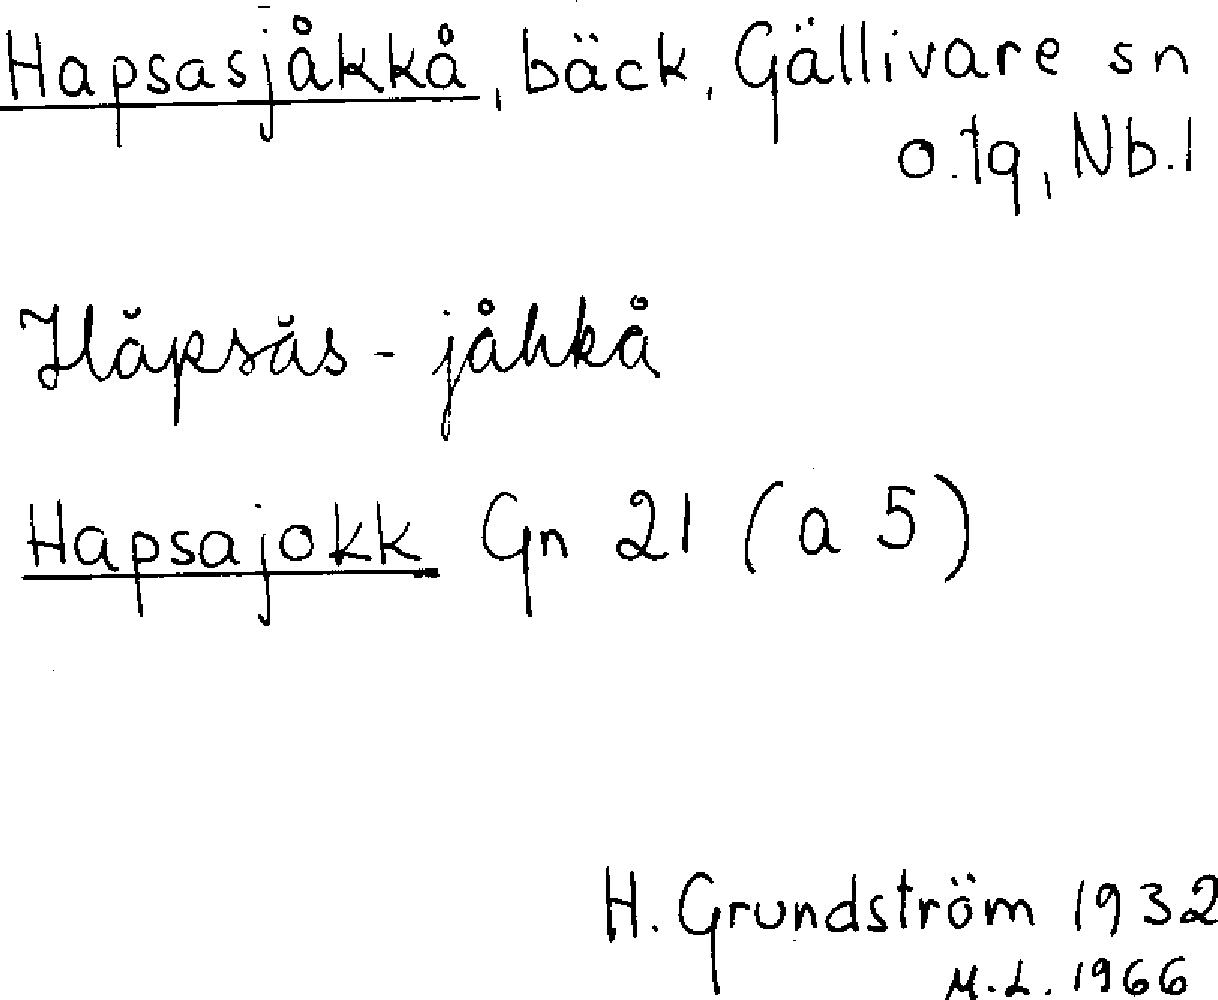 Hapsasjåkkå, bäck, Gällivare sn
o. tg, Nb. l
Hăpsăs-jåhkå
Hapsajokk Gn 21 (a 5)
H. Grundström 1932
M. L. 1966